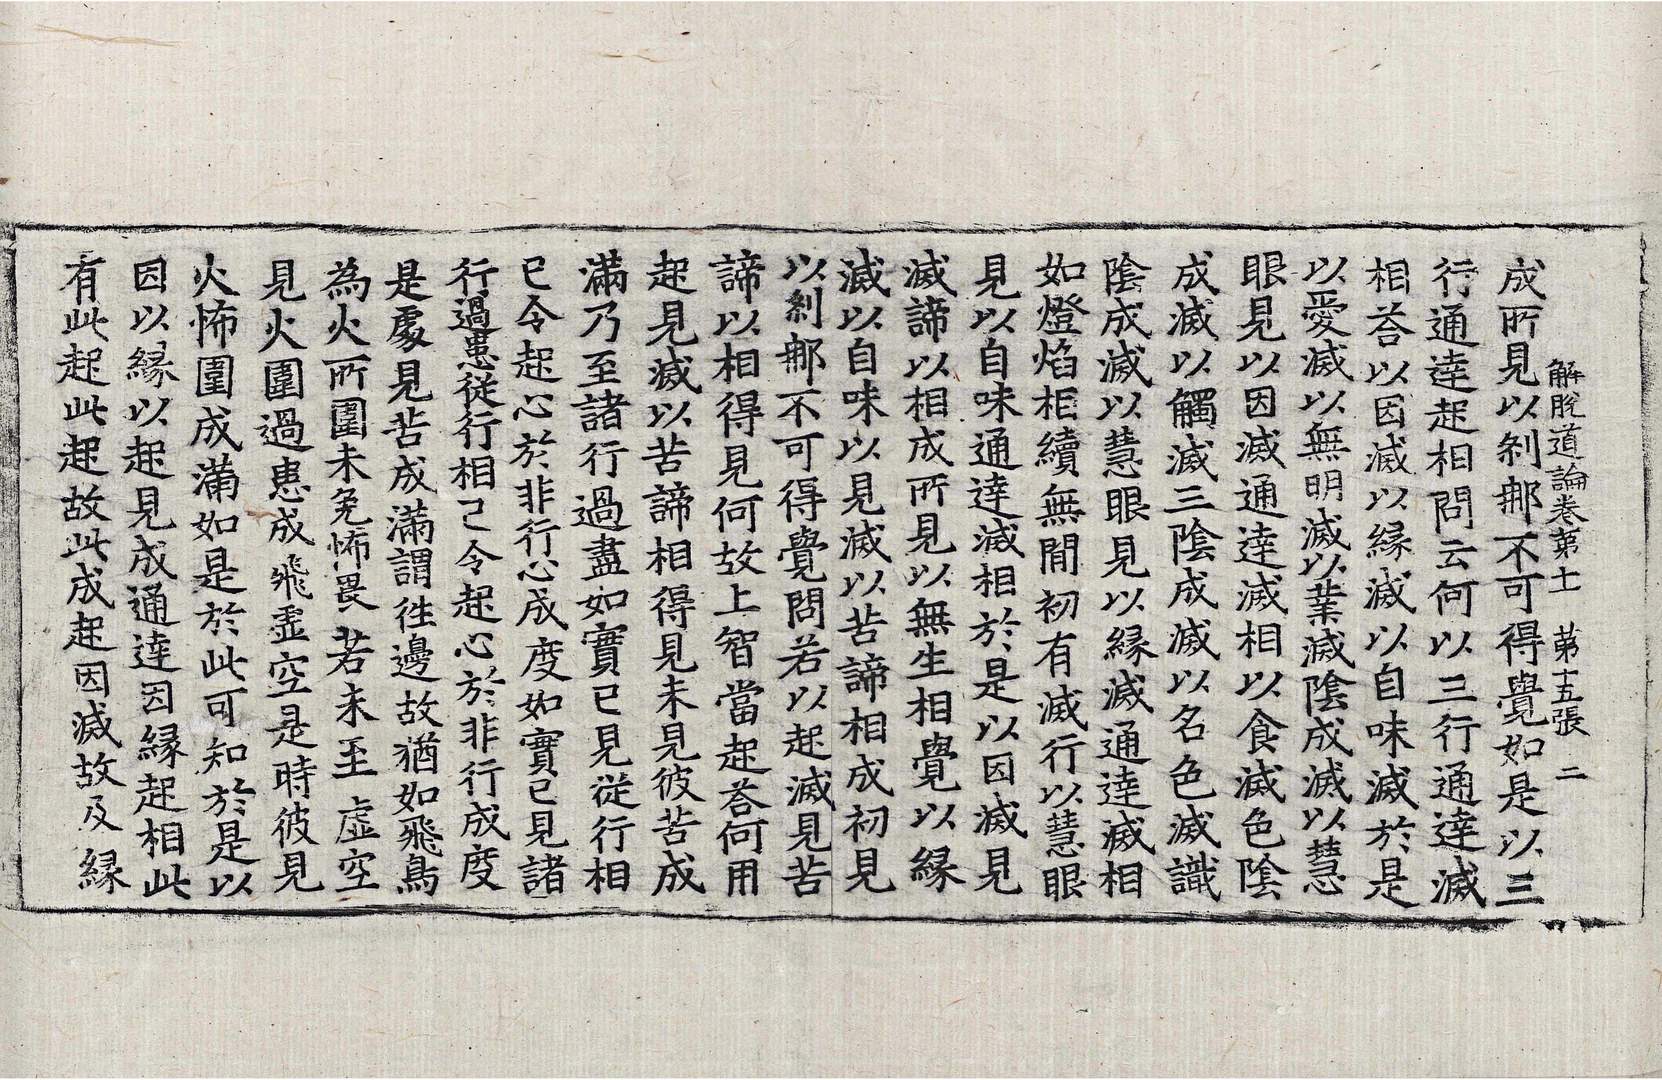 解脫道論卷第十二 第十五張 二
成所見以刹那不可得覺如是以三
行通達起相問云何以三行通達滅
相荅以因滅以緣滅以自味滅於是
以愛滅以無明滅以業滅陰成滅以慧
眼見以因滅通達滅相以食滅色陰
成滅以觸滅三陰成滅以名色滅識
陰成滅以慧眼見以緣滅通達滅相
如燈焰相續無間初有滅行以慧眼
見以自味通達滅相於是以因滅見
滅諦以相成所見以無生相覺以緣
滅以自味以見滅以苦諦相成初見
以刹那不可得覺問若以起滅見苦
諦以相得見何故上智當起荅何用
起見滅以苦諦相得見未見彼苦成
滿乃至諸行過盡如實已見從行相
已令起心於非行心成度如實已見諸
行過患從行相已令起心於非行成度
是處見苦成滿謂徃邊故猶如飛鳥
為火所圍未免怖畏若未至虛空
見火圍過患成飛虛空是時彼見
火怖圍成滿如是於此可知於是以
因以緣以起見成通達因緣起相此
有此起此起故此成起因滅故及緣